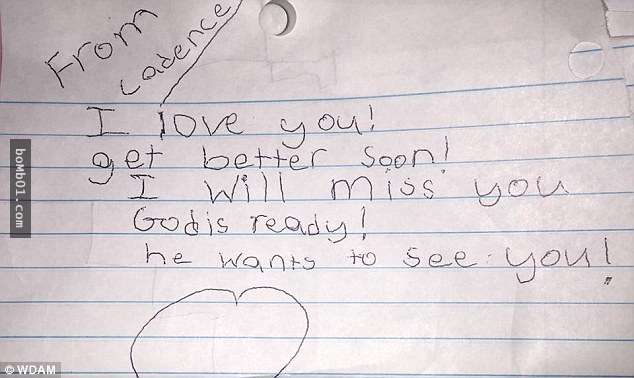 From
Cadence
I love you!
get better soon!
I will miss you
God is ready!
he wants to see you!
boMb01.com
© WDAM